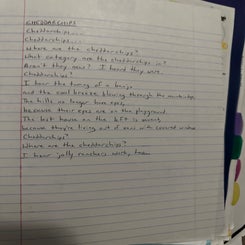 CHEDDARCHIPS
Cheddarchips.....
Cheddarchips.....
Where are the cheddarchips?
What category are the cheddarchips in?
Aren't they new? I heard they were.
Cheddarchips?
I hear the tuning of a banjo
and the cool breeze blowing through the mountaintops
The hills no longer have eyes,
because their eyes are on the playground
The last house on the left is moving
because they're living out of vans with covered windows
Cheddarchips?
Where are the cheddarchips?
I hear jolly ranchers work, too.